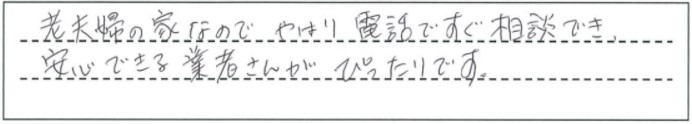 老夫婦の家なので やはり 電話ですぐ相談でき、
安心できる業者さんが ぴったりです。